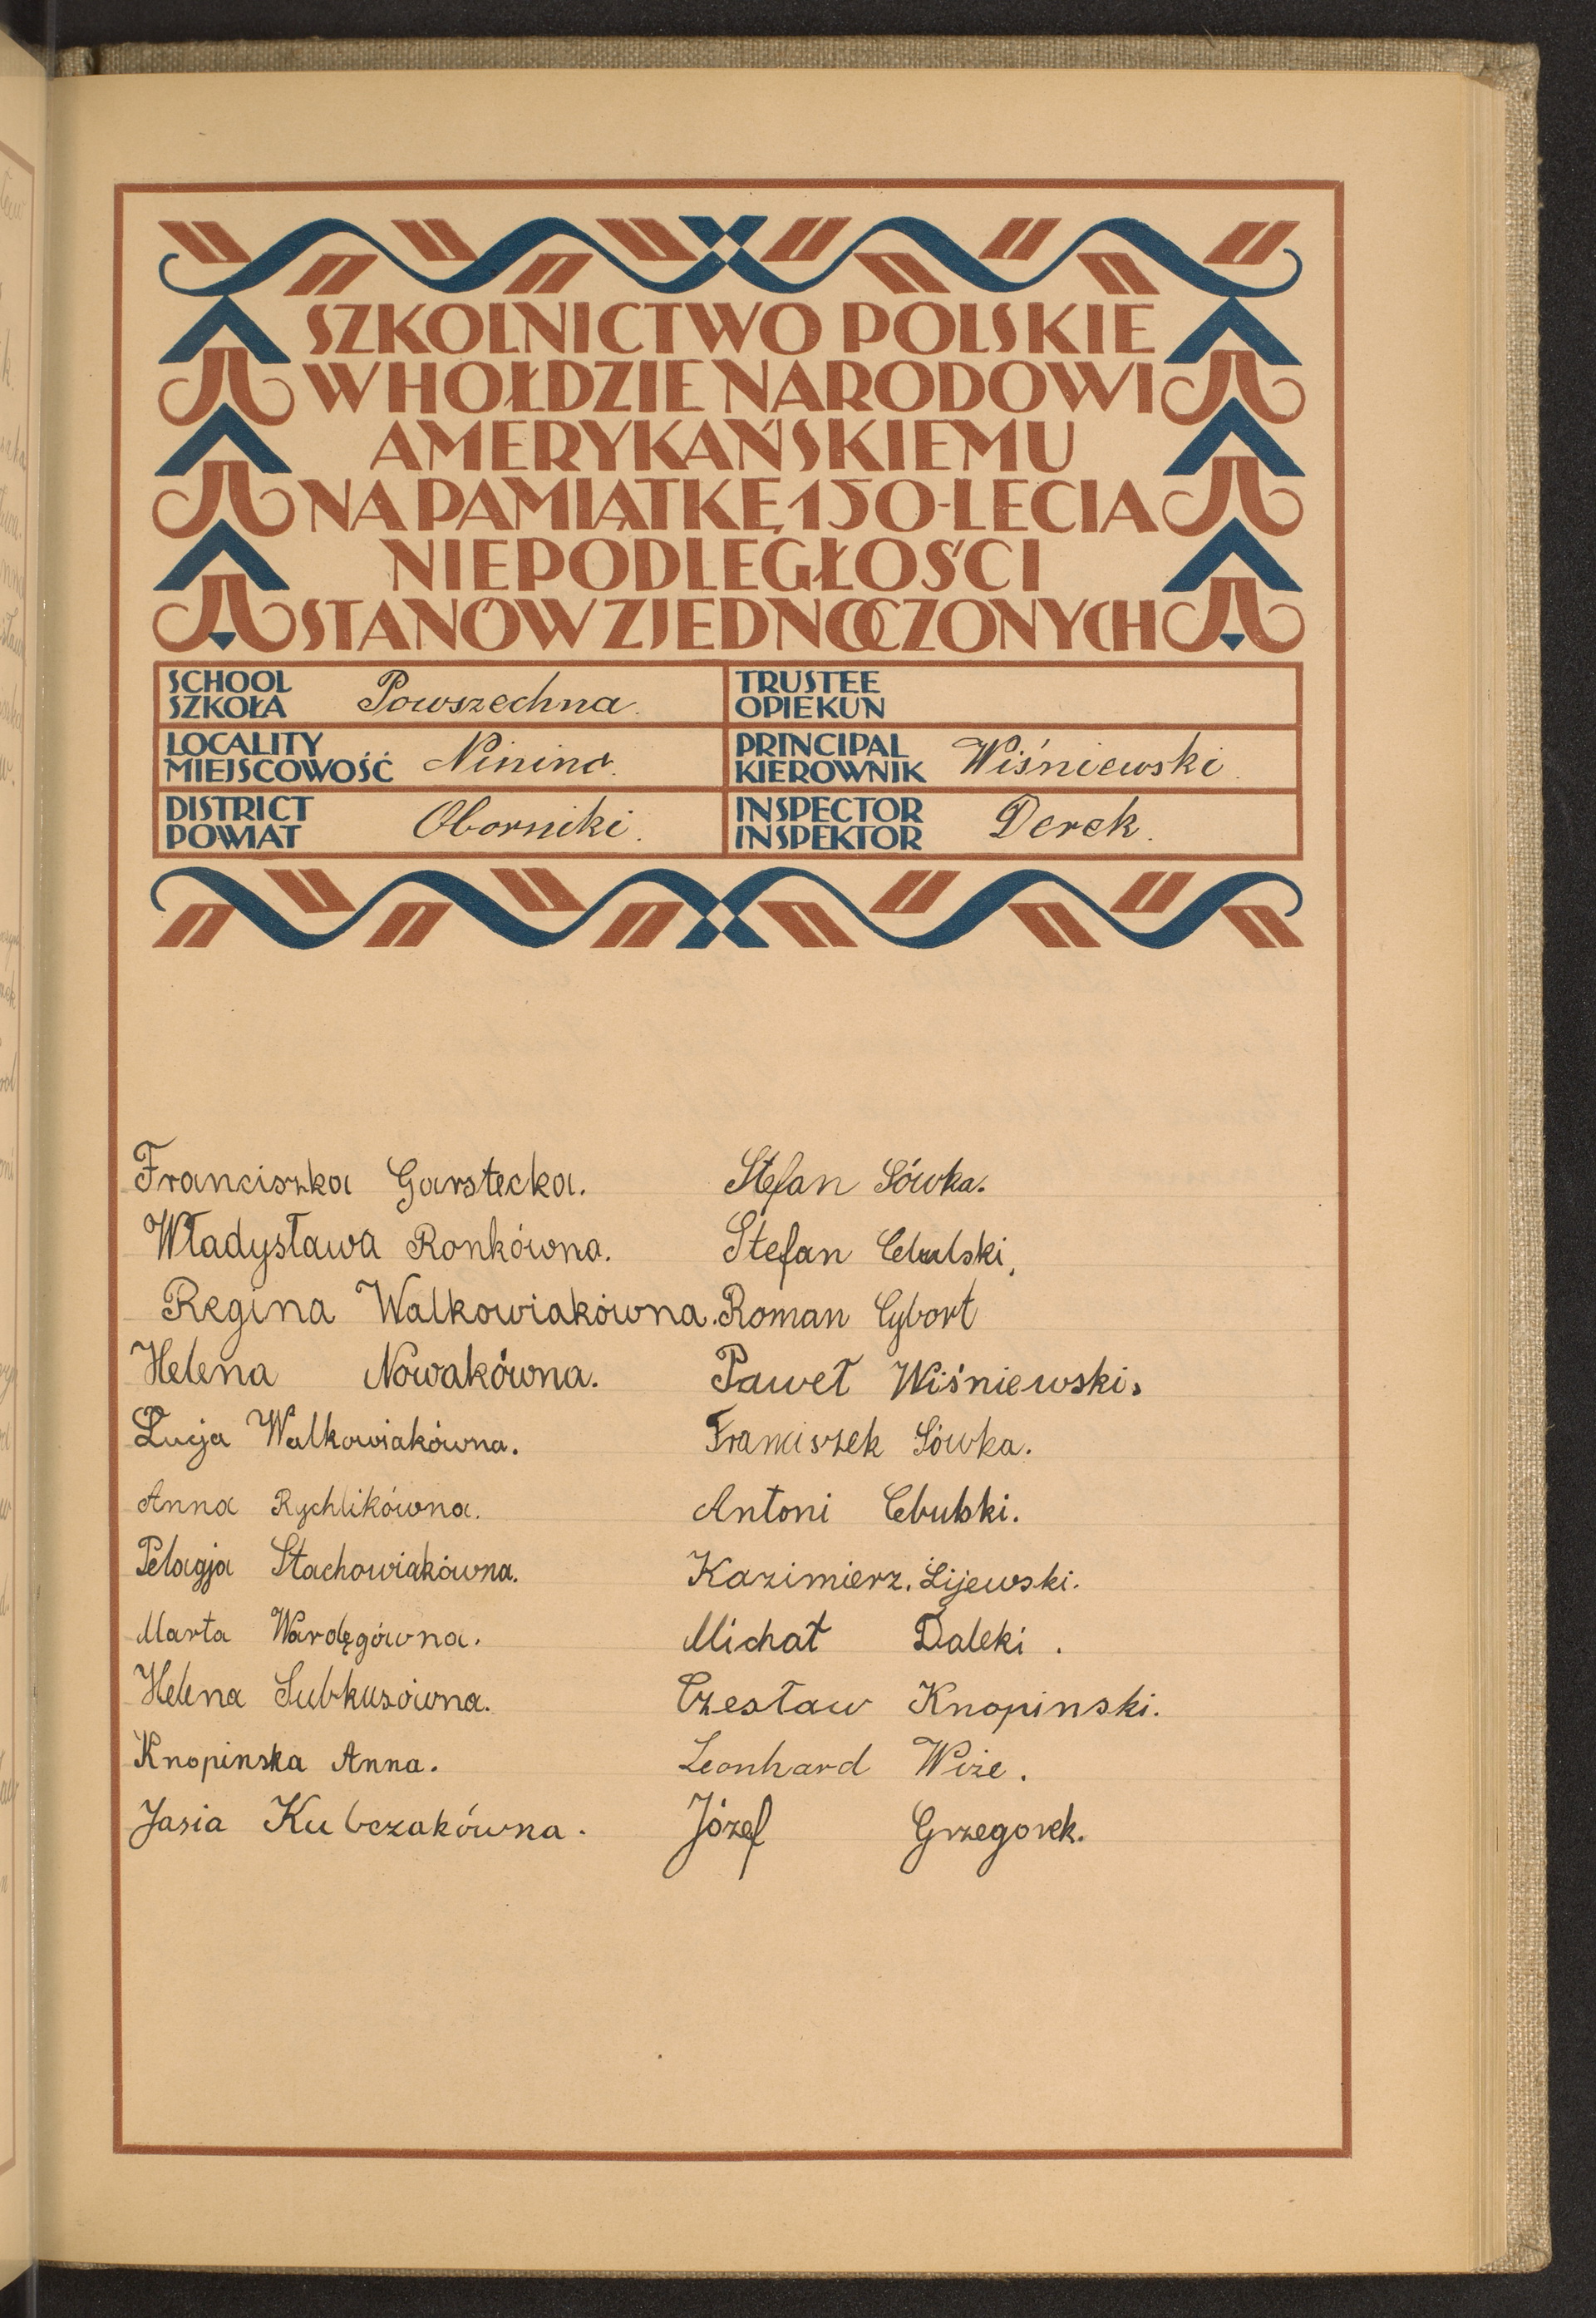 SZKOLNICTWO POLSKIE
W HOŁDZIE NARODOWI
AMERYKAŃSKIEMU
NA PAMIĄTKĘ 150-LECIA
NIEPODLEGŁOŚCI
STANÓW ZJEDNOCZONYCH
SCHOOL
SZKOŁA Powszechna.
TRUSTEE
OPIEKUN
LOCALITY
MIEJSCOWOŚĆ Ninino.
PRINCIPAL
KIEROWNIK Wiśniewski.
DISTRICT
POWIAT Oborniki.
INSPECTOR
INSPEKTOR Derek.
Franciszka Garstecka.
Władysława Ronkówna.
Regina Walkowiakówna.
Helena Nowakówna.
Łucja Walkowiakówna.
Anna Rychlikówna.
Pelagja Stachowiakówna.
Marta Wardęgówna.
Helena Subkusówna.
Knopinska Anna.
Jasia Kubczakówna.
Stefan Sówka.
Stefan Cebulski.
Roman Cybort
Paweł Wiśniewski.
Franciszek Sówka.
Antoni Cebulski.
Kazimierz. Lijewski.
Michał Daleki.
Czesław Knopinski.
Leonhard Wize.
Józef Grzegorek.